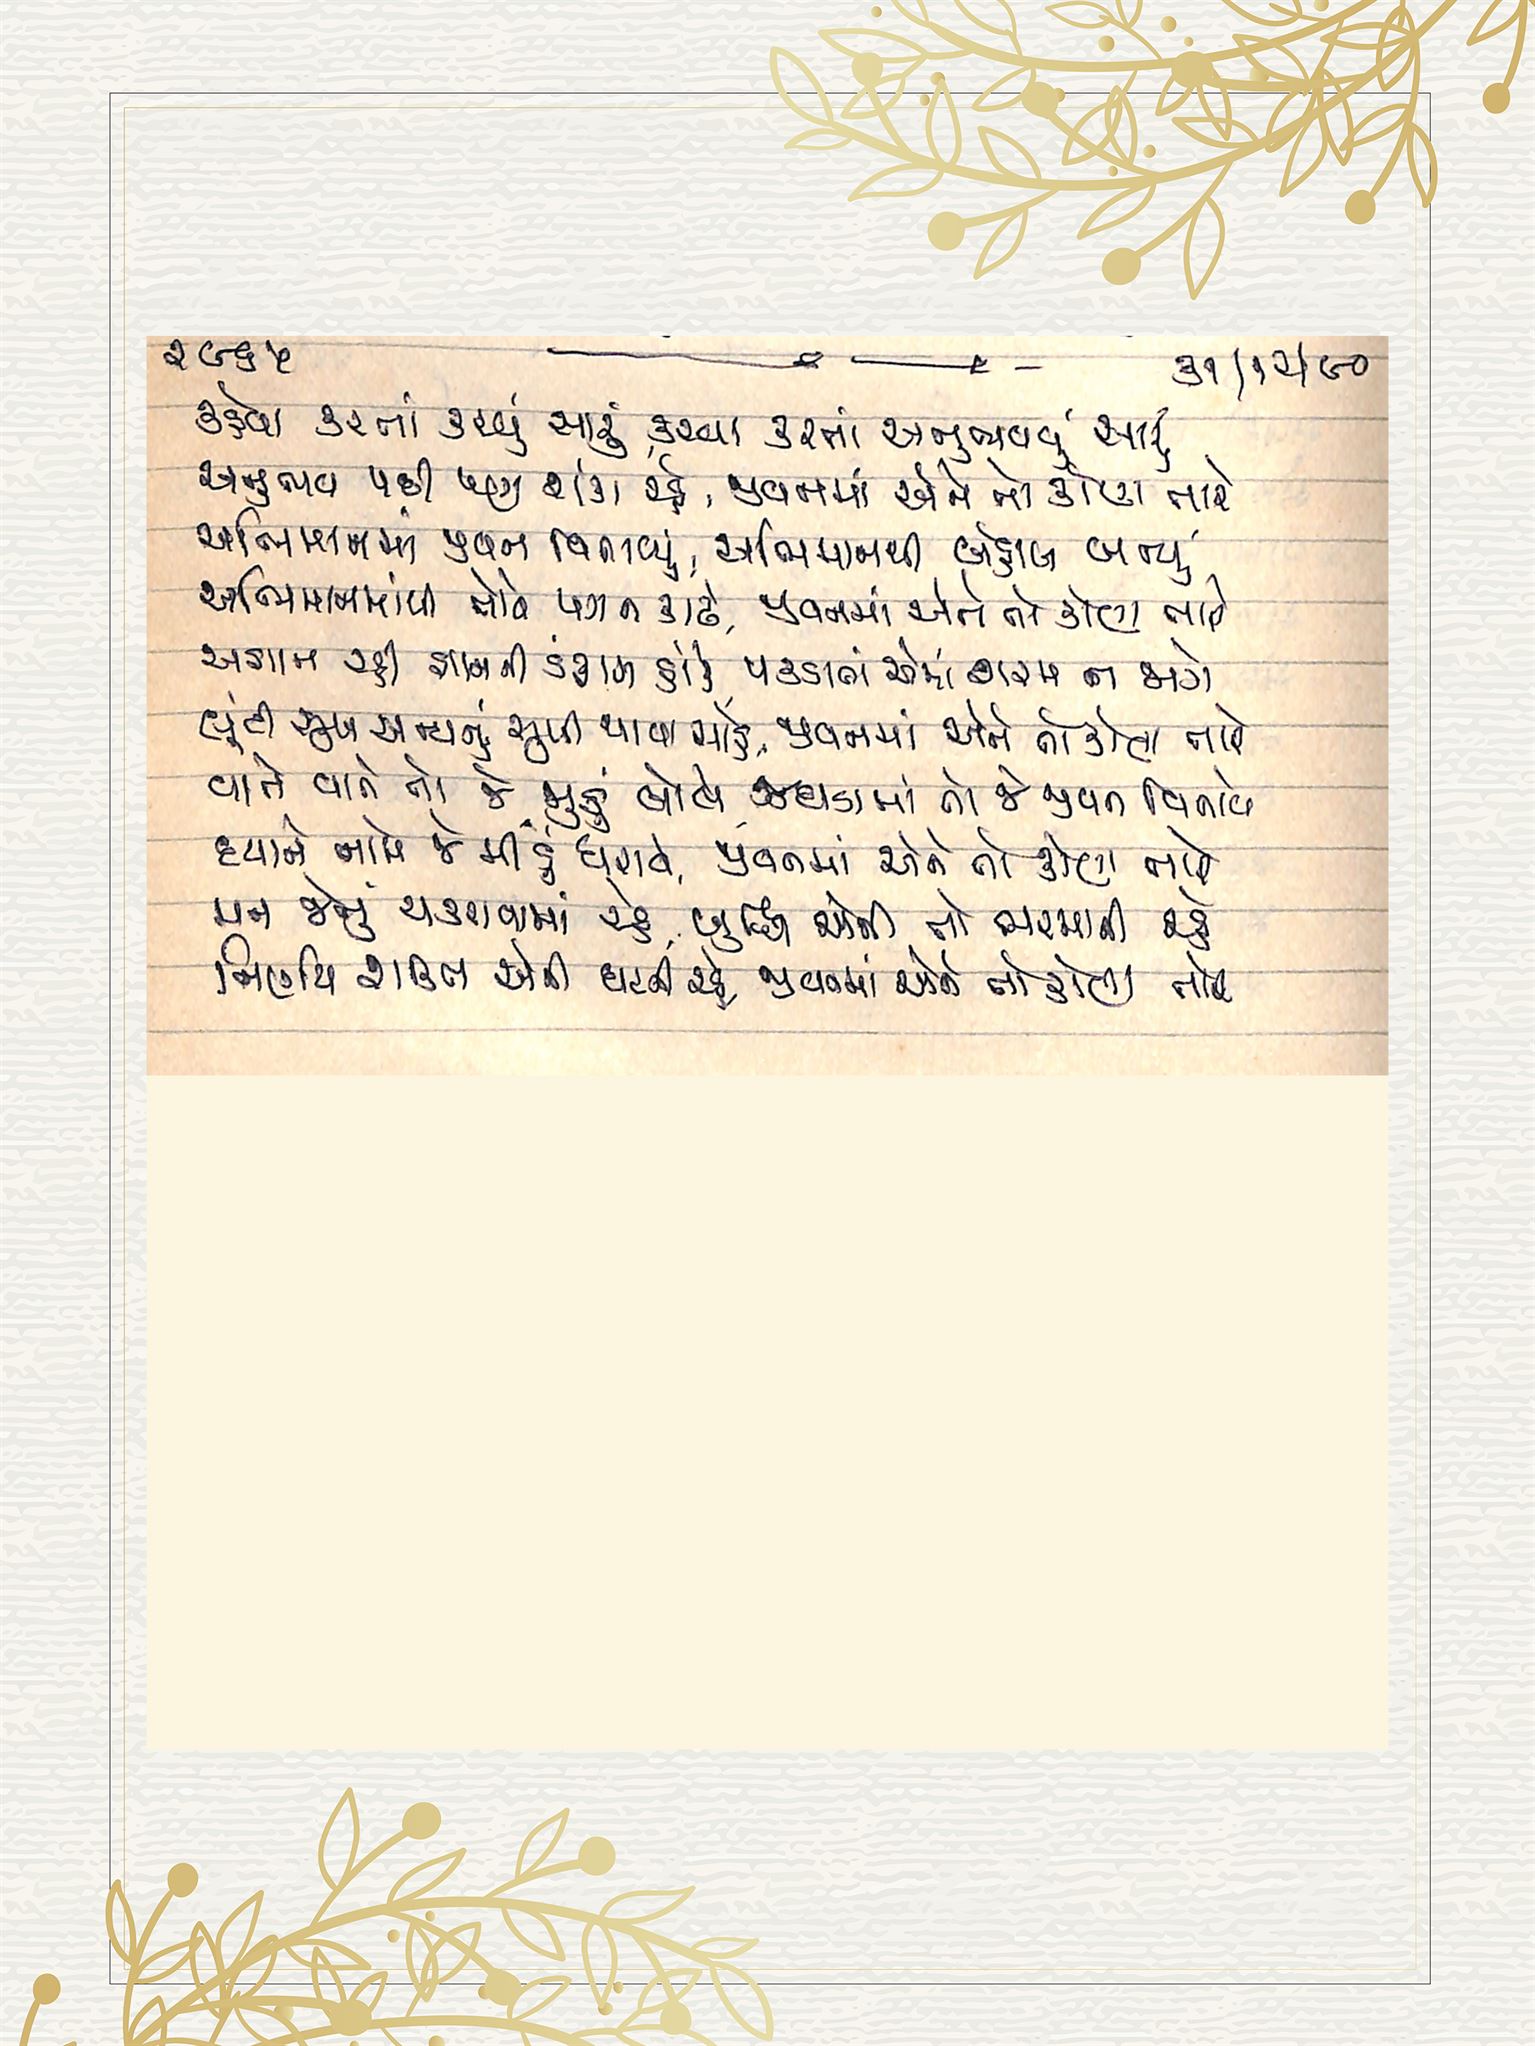 ૨૯૬૫ ૩૧/૧૨/૯૦
કહેવા કરતાં કરવું સારું, કરવા કરતાં અનુભવવું સારું
અનુભવ પછી પણ શંકા રહે, જીવનમાં એને તો કોણ તારે
અભિમાનમાં જીવન વિતાવ્યું, અભિમાનથી બેફામ બન્યું
અભિમાનમાંથી ન પગ ન કાઢે, જીવનમાં એને તો કોણ તારે
અજ્ઞાન રહી જ્ઞાનની ડંફાસ હાંકે, પકડાતાં એમાં શરમ ન લાગે
લૂંટી સુખ અન્યનું સુખી થાવા માંડે, જીવનમાં એને તો કોણ તારે
વાતે વાતે તો જે જુઠું બોલે, ઝઘડામાં તો જે જીવન વિતાવે
ધ્યાને નામે જે મીંડું ધરાવે, જીવનમાં એને તો કોણ તારે
મન જેનું ચકરાવામાં રહે, બુદ્ધિ એની તો ભરમાતી રહે
નિર્ણય શક્તિ એની ઘટતી રહે, જીવનમાં એને તો કોણ તારે